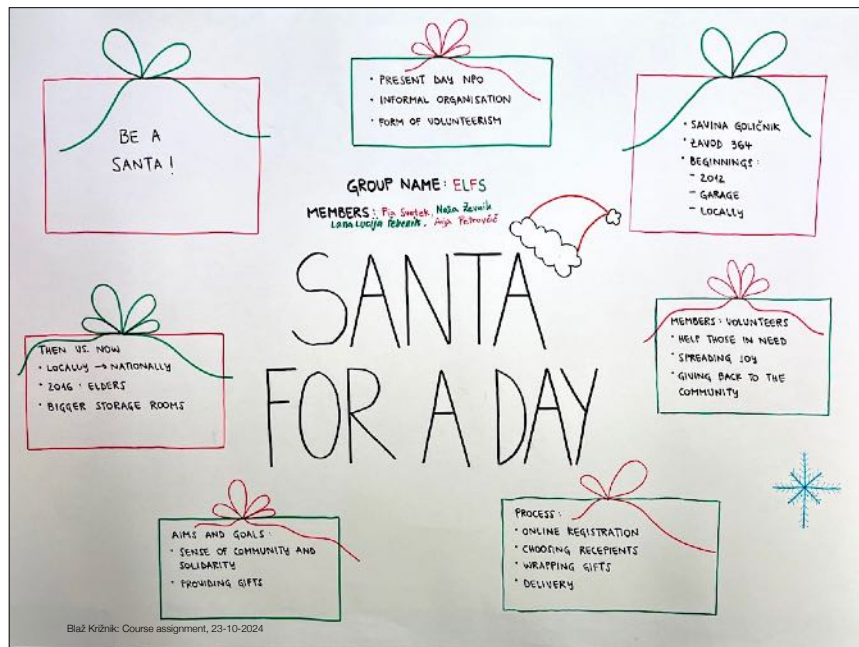 BE A
SANTA!
• PRESENT DAY NPO
• INFORMAL ORGANISATION
• FORM OF VOLUNTEERISM
• SAVINA GOLIČNIK
• ZAVOD 364
• BEGINNINGS:
- 2012
- GARAGE
- LOCALLY
GROUP NAME: ELFS
MEMBERS: Pia Svetek, Neža Ževnik
Lana Lucija Peternik, Anja Petrovčič
SANTA
FOR A DAY
THEN VS. NOW
• LOCALLY → NATIONALLY
• 2016: ELDERS
• BIGGER STORAGE ROOMS
MEMBERS: VOLUNTEERS
• HELP THOSE IN NEED
• SPREADING JOY
• GIVING BACK TO THE
COMMUNITY
AIMS AND GOALS:
• SENSE OF COMMUNITY AND
SOLIDARITY
• PROVIDING GIFTS
PROCESS:
• ONLINE REGISTRATION
• CHOOSING RECEPIENTS
• WRAPPING GIFTS
• DELIVERY
Blaž Križnik: Course assignment, 23-10-2024